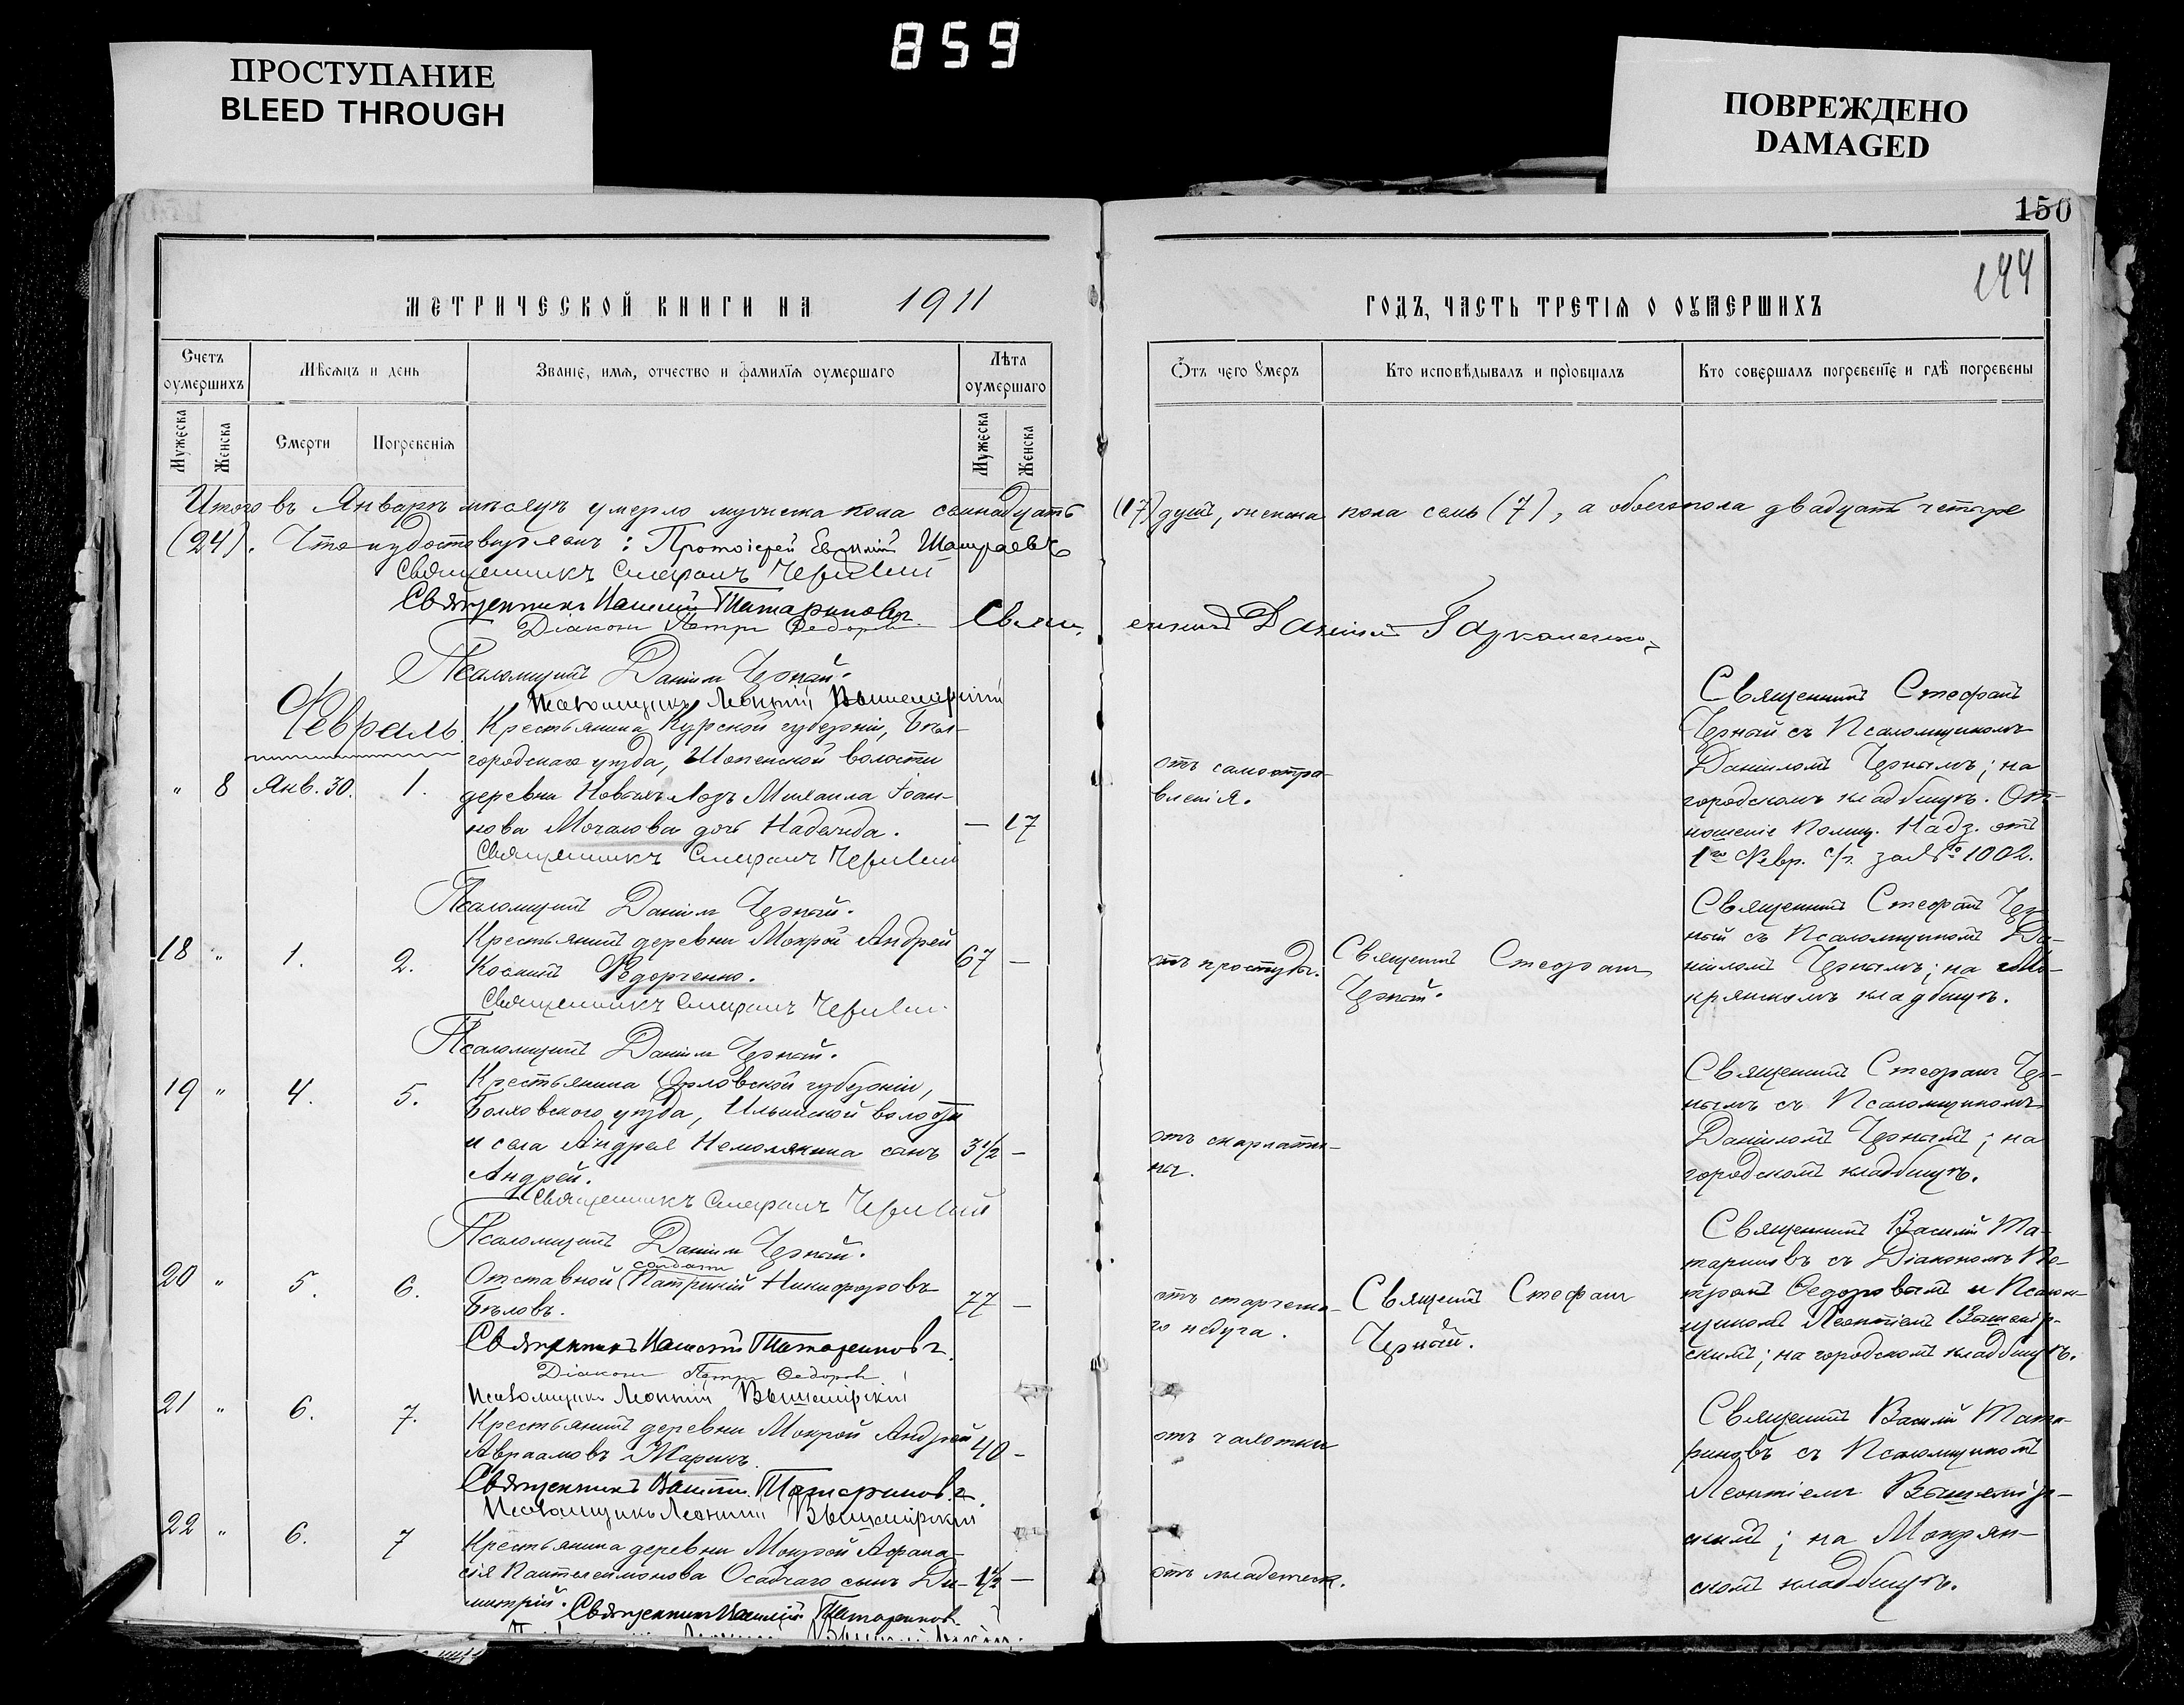 859
ПРОСТУПАНИЕ
BLEED THROUGH
ПОВРЕЖДЕНО
DAMAGED
150
144
МЕТРИЧЕСКОЙ КНИГИ НА 1911
ГОДЪ, ЧАСТЬ ТРЕТІЯ О ОУМЕРШИХЪ
Счетъ оумершихъ
Мѣсяцъ и день
Званіе, имя, отчество и фамилія оумершаго
Лѣта оумершаго
Отъ чего Умеръ
Кто исповѣдывалъ и пріобщалъ
Кто совершалъ погребеніе и гдѣ погребены
Мужеска
Женска
Смерти
Погребенія
Мужеска
Женска
Итого въ Январѣ мѣсяцѣ умерло мужеска пола семнадцать (17) душъ, женска пола семь (7), а обоего пола двадцать четыре
(24). Что и удостовѣряемъ: Протоіерей Евѳимій
Священникъ Стефанъ Черный
Священникъ Василій Татариновъ.
Діаконъ Петръ Федоровъ
Священникъ Даніилъ
Псаломщикъ Даніилъ Черный.
Псаломщикъ Леонтій Вышемірскій
Февраль.
Крестьянина Курской губерніи, Бѣл-
городскаго уѣзда, Шопенской волости
" 8 Янв. 30. 1.
деревни Новыхъ Лозъ Михаила Іоан-
нова Мочалова дочь Надежда. — 17
отъ самоотра-
вленія.
Священникъ Стефанъ
Черный съ Псаломщикомъ
Даніиломъ Чернымъ; на
городскомъ кладбищѣ. От-
ношеніе Полиц. Надз. отъ
1го Февр. с/г. за № 1002.
Священникъ Стефанъ Черный
Псаломщикъ Даніилъ Черный.
18 " 1. 2.
Крестьянинъ деревни Мокрой Андрей
Косминъ Федорченко. 67 —
отъ простуды.
Священникъ Стефанъ
Черный.
Священникъ Стефанъ Чер-
ный съ Псаломщикомъ Да-
ніиломъ Чернымъ; на Мо-
крянскомъ кладбищѣ.
Священникъ Стефанъ Черный
Псаломщикъ Даніилъ Черный.
19 " 4. 5.
Крестьянина Орловской губерніи,
Болховского уѣзда, Ильинской волости
и села Андрея Немолякина сынъ 3½ —
Андрей.
отъ скарлати-
ны.
Священникъ Стефанъ Чер-
нымъ съ Псаломщикомъ
Даніиломъ Чернымъ; на
городскомъ кладбищѣ.
Священникъ Стефанъ Черный
Псаломщикъ Даніилъ Черный.
20 " 5. 6.
солдатъ
Отставной Патрикій Никифоровъ
Бѣловъ. 77 —
отъ старческа-
го недуга.
Священникъ Стефанъ
Черный.
Священникъ Василій Та-
тариновъ съ Діакономъ Пе-
тромъ Федоровымъ и Псалом-
щикомъ Леонтіемъ Вышемір-
скимъ; на городскомъ кладбищѣ.
Священникъ Василій Татариновъ.
Діаконъ Петръ Федоровъ
Псаломщикъ Леонтій Вышемірскій
21 " 6. 7.
Крестьянинъ деревни Мокрой Андрей
Авраамовъ 40 -
отъ чахотки
Священникъ Василій Тата-
риновъ съ Псаломщикомъ
Леонтіемъ Вышемір-
скимъ; на Мокрян-
скомъ кладбищѣ.
Священникъ Василій Татариновъ.
Псаломщикъ Леонтій Вышемірскій
22 " 6. 7
Крестьянина деревни Мокрой Афана-
сія Пантелеимонова Осадчаго сынъ Ди- 1½ —
митрій.
отъ младенческ.
Священникъ Василій Татариновъ